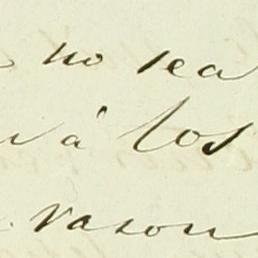 no sea
á los
rason